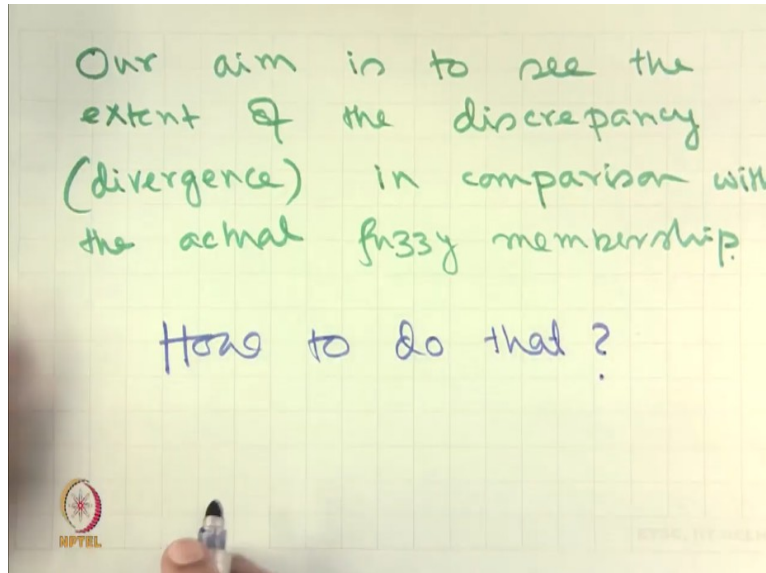 Our aim is to see the
extent of the discrepancy
(divergence) in comparison with
the actual fuzzy membership.
How to do that ?
NPTEL